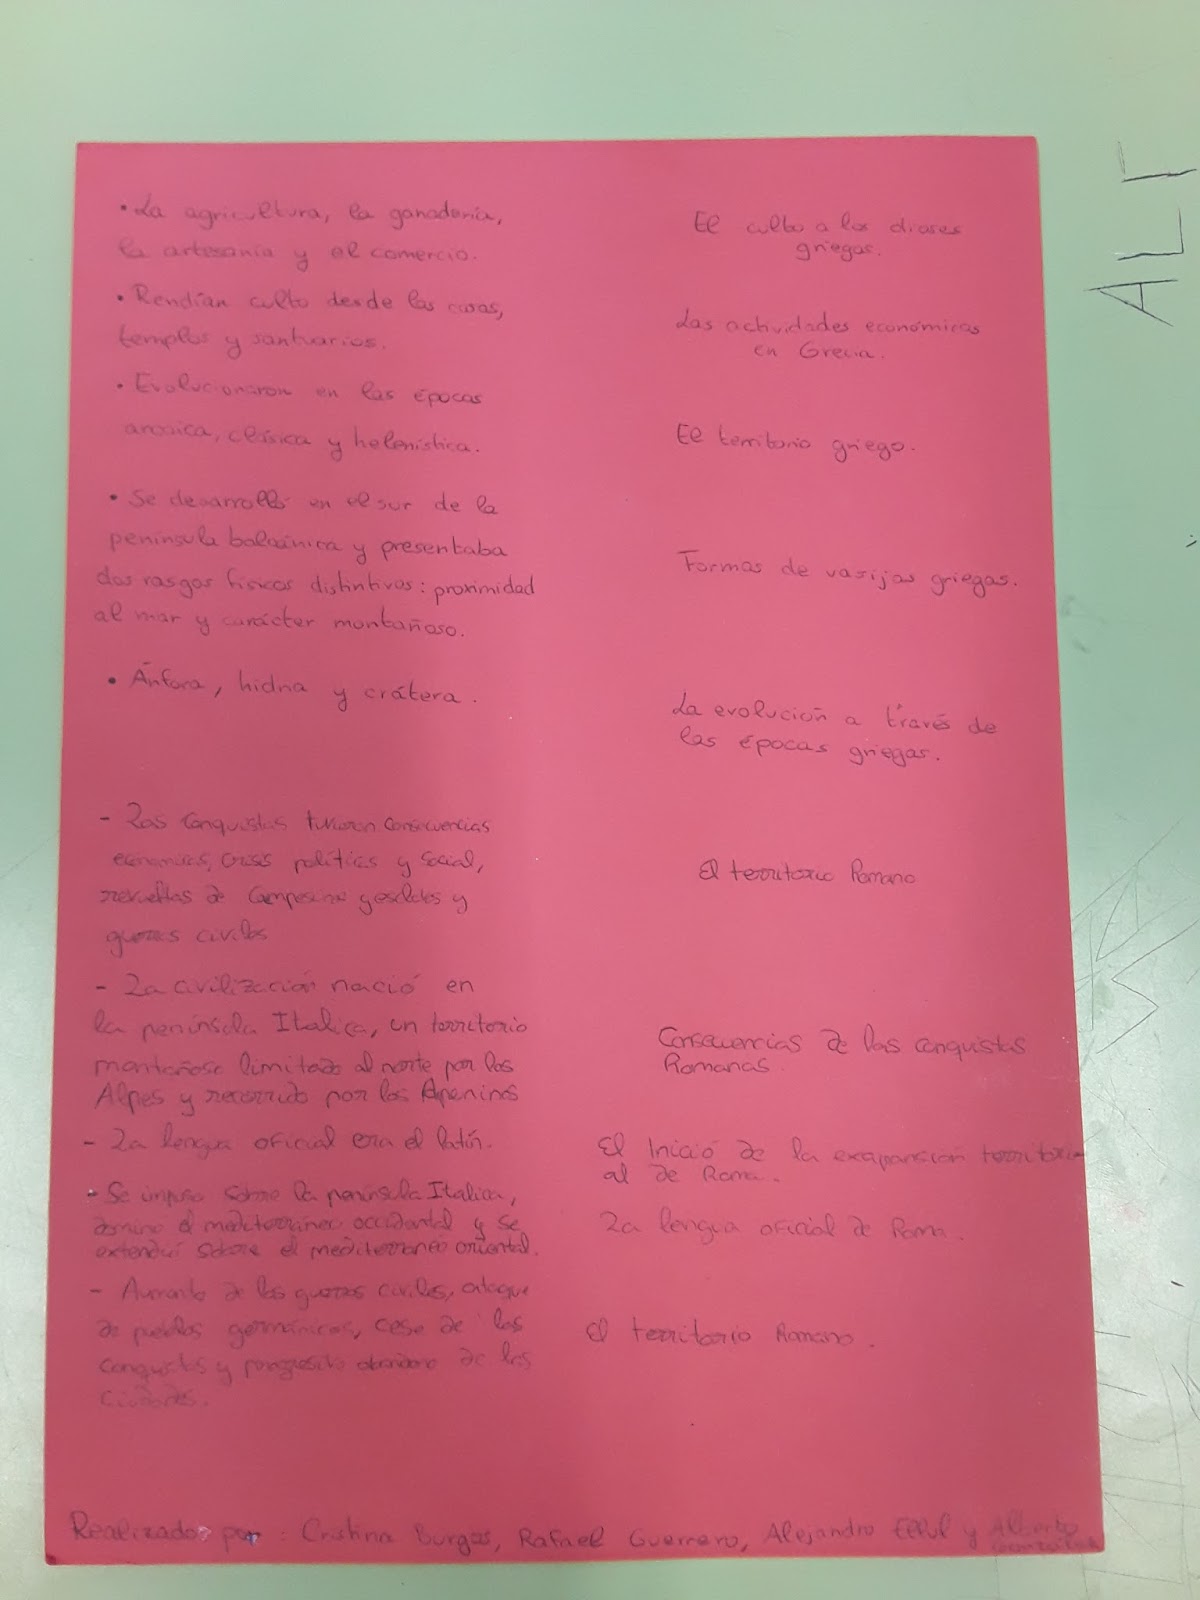 • La agricultura, la ganadería,
la artesanía y el comercio.
• Rendían culto desde las casas,
templos y santuarios.
• Evolucionaron en las épocas
arcaica, clásica y helenística.
• Se desarrolló en el sur de la
península balcánica y presentaba
dos rasgos físicos distintivos: proximidad
al mar y carácter montañoso.
• Ánfora, hidria y crátera.
El culto a los dioses
griegas.
Las actividades económicas
en Grecia.
El territorio griego.
Formas de vasijas griegas.
La evolución a través de
las épocas griegas.
- Las conquistas tuvieron consecuencias
economicas, crisis políticas y social,
revueltas de campesinos y esclavos y
guerras civiles
- La civilización nació en
la península Italica, un territorio
montañoso limitado al norte por los
Alpes y recorrido por los Apeninos
- La lengua oficial era el latín.
- Se impuso sobre la península Italica,
domino el mediterráneo occidental y se
extendió sobre el mediterraneo oriental.
- Aumento de las guerras civiles, ataque
de pueblos germánicos, cese de las
conquistas y progresivo abandono de las
ciudades.
El territorio Romano
Consecuencias de las conquistas
Romanas.
El Inició de la exapansión territori
al de Roma.
La lengua oficial de Roma.
El territorio Romano.
Realizado por: Cristina Burgos, Rafael Guerrero, Alejandro Efful y Alberto
ALF